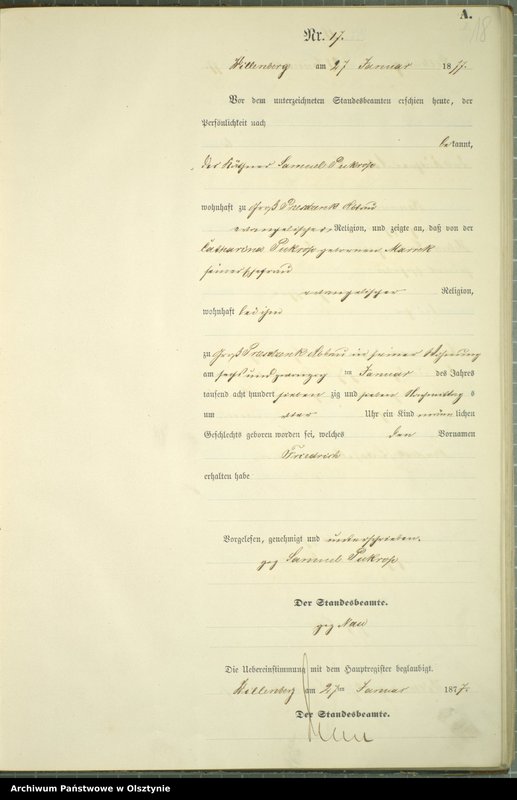 A.
18
Nr. 17.
Willenberg am 27 Januar 1877.
Vor dem unterzeichneten Standesbeamten erschien heute, der
Persönlichkeit nach
bekannt,
der Käthner Samuel Pukrop
wohnhaft zu Groß Abbau
evangelischer Religion, und zeigte an, daß von der
Catharina Pukrop geborenen
seiner Ehefrau
evangelischer Religion,
wohnhaft bei ihm
zu Groß Abbau in seiner Wohnung
am sechs und zwanzig ten Januar des Jahres
tausend acht hundert sieben zig und sieben Nachmittags
um Uhr ein Kind männlichen
Geschlechts geboren worden sei, welches den Vornamen
Friedrich
erhalten habe
Vorgelesen, genehmigt und unterschrieben.
gez Samuel Pukrop
Der Standesbeamte.
gez Nau
Die Uebereinstimmung mit dem Hauptregister beglaubigt.
Willenberg am 27ten Januar 1877.
Der Standesbeamte.
Nau
Archiwum Państwowe w Olsztynie